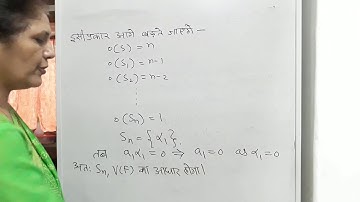 इसीप्रकार आगे बढ़ते जाएंगे —
o(S) = n
o(S₁) = n-1
o(S₂) = n-2
⋮
o(Sₙ) = 1
Sₙ = {α₁}
तब a₁α₁ = 0 ⇒ a₁ = 0 as α₁ = 0
अतः Sₙ, V(F) का आधार होगा।